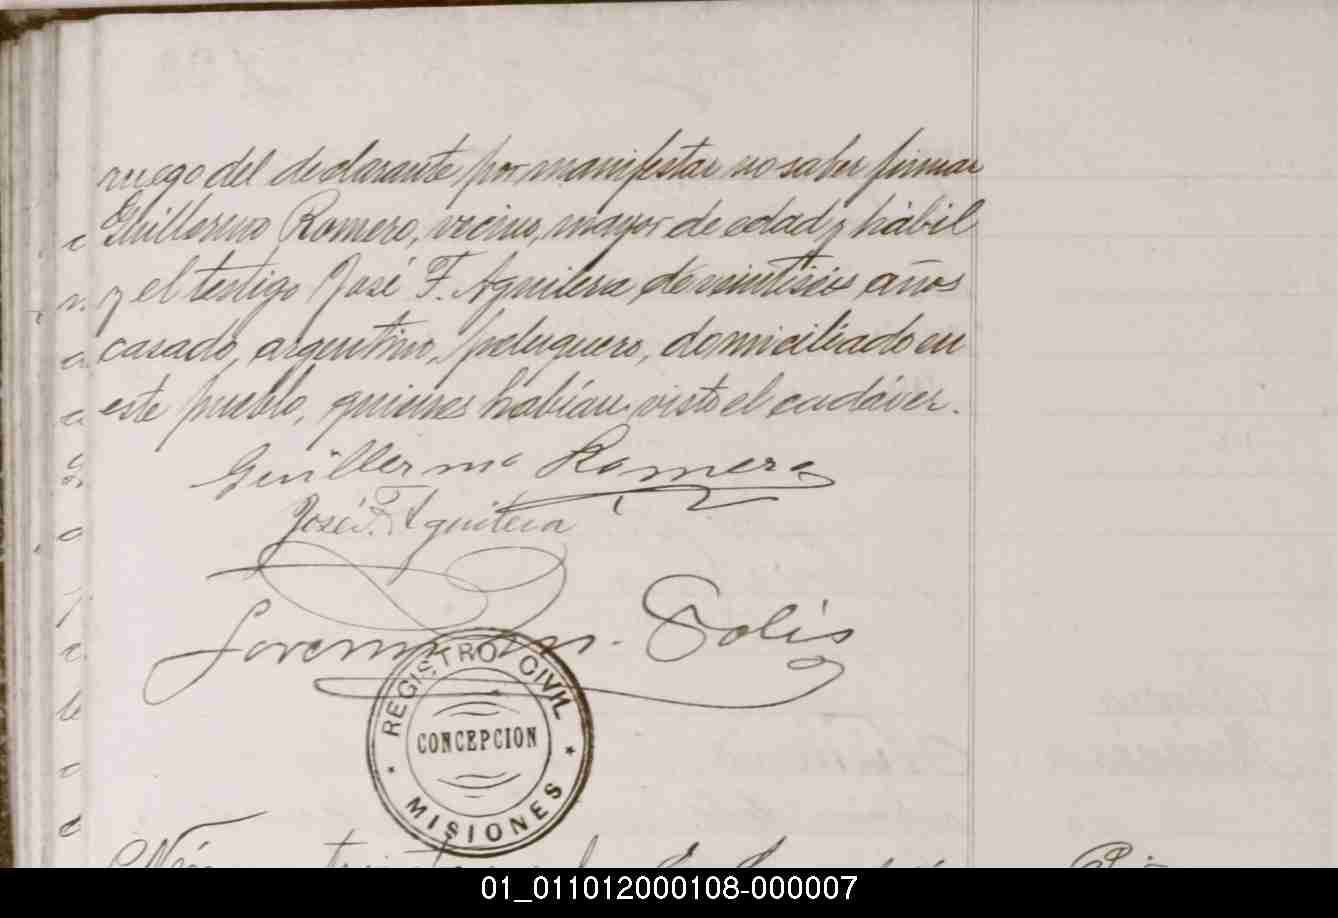 ruego del declarante por manifestar no saber firmar
Guillermo Romero, vecino, mayor de edad y hábil
y el testigo José F. Aguilera, de veintiseis años
casado, argentino, peluquero, domiciliado en
este pueblo, quienes habían visto el cadáver.
Guillermo Romero
José F. Aguilera
Solis
REGISTRO CIVIL
CONCEPCION
MISIONES
01_011012000108-000007